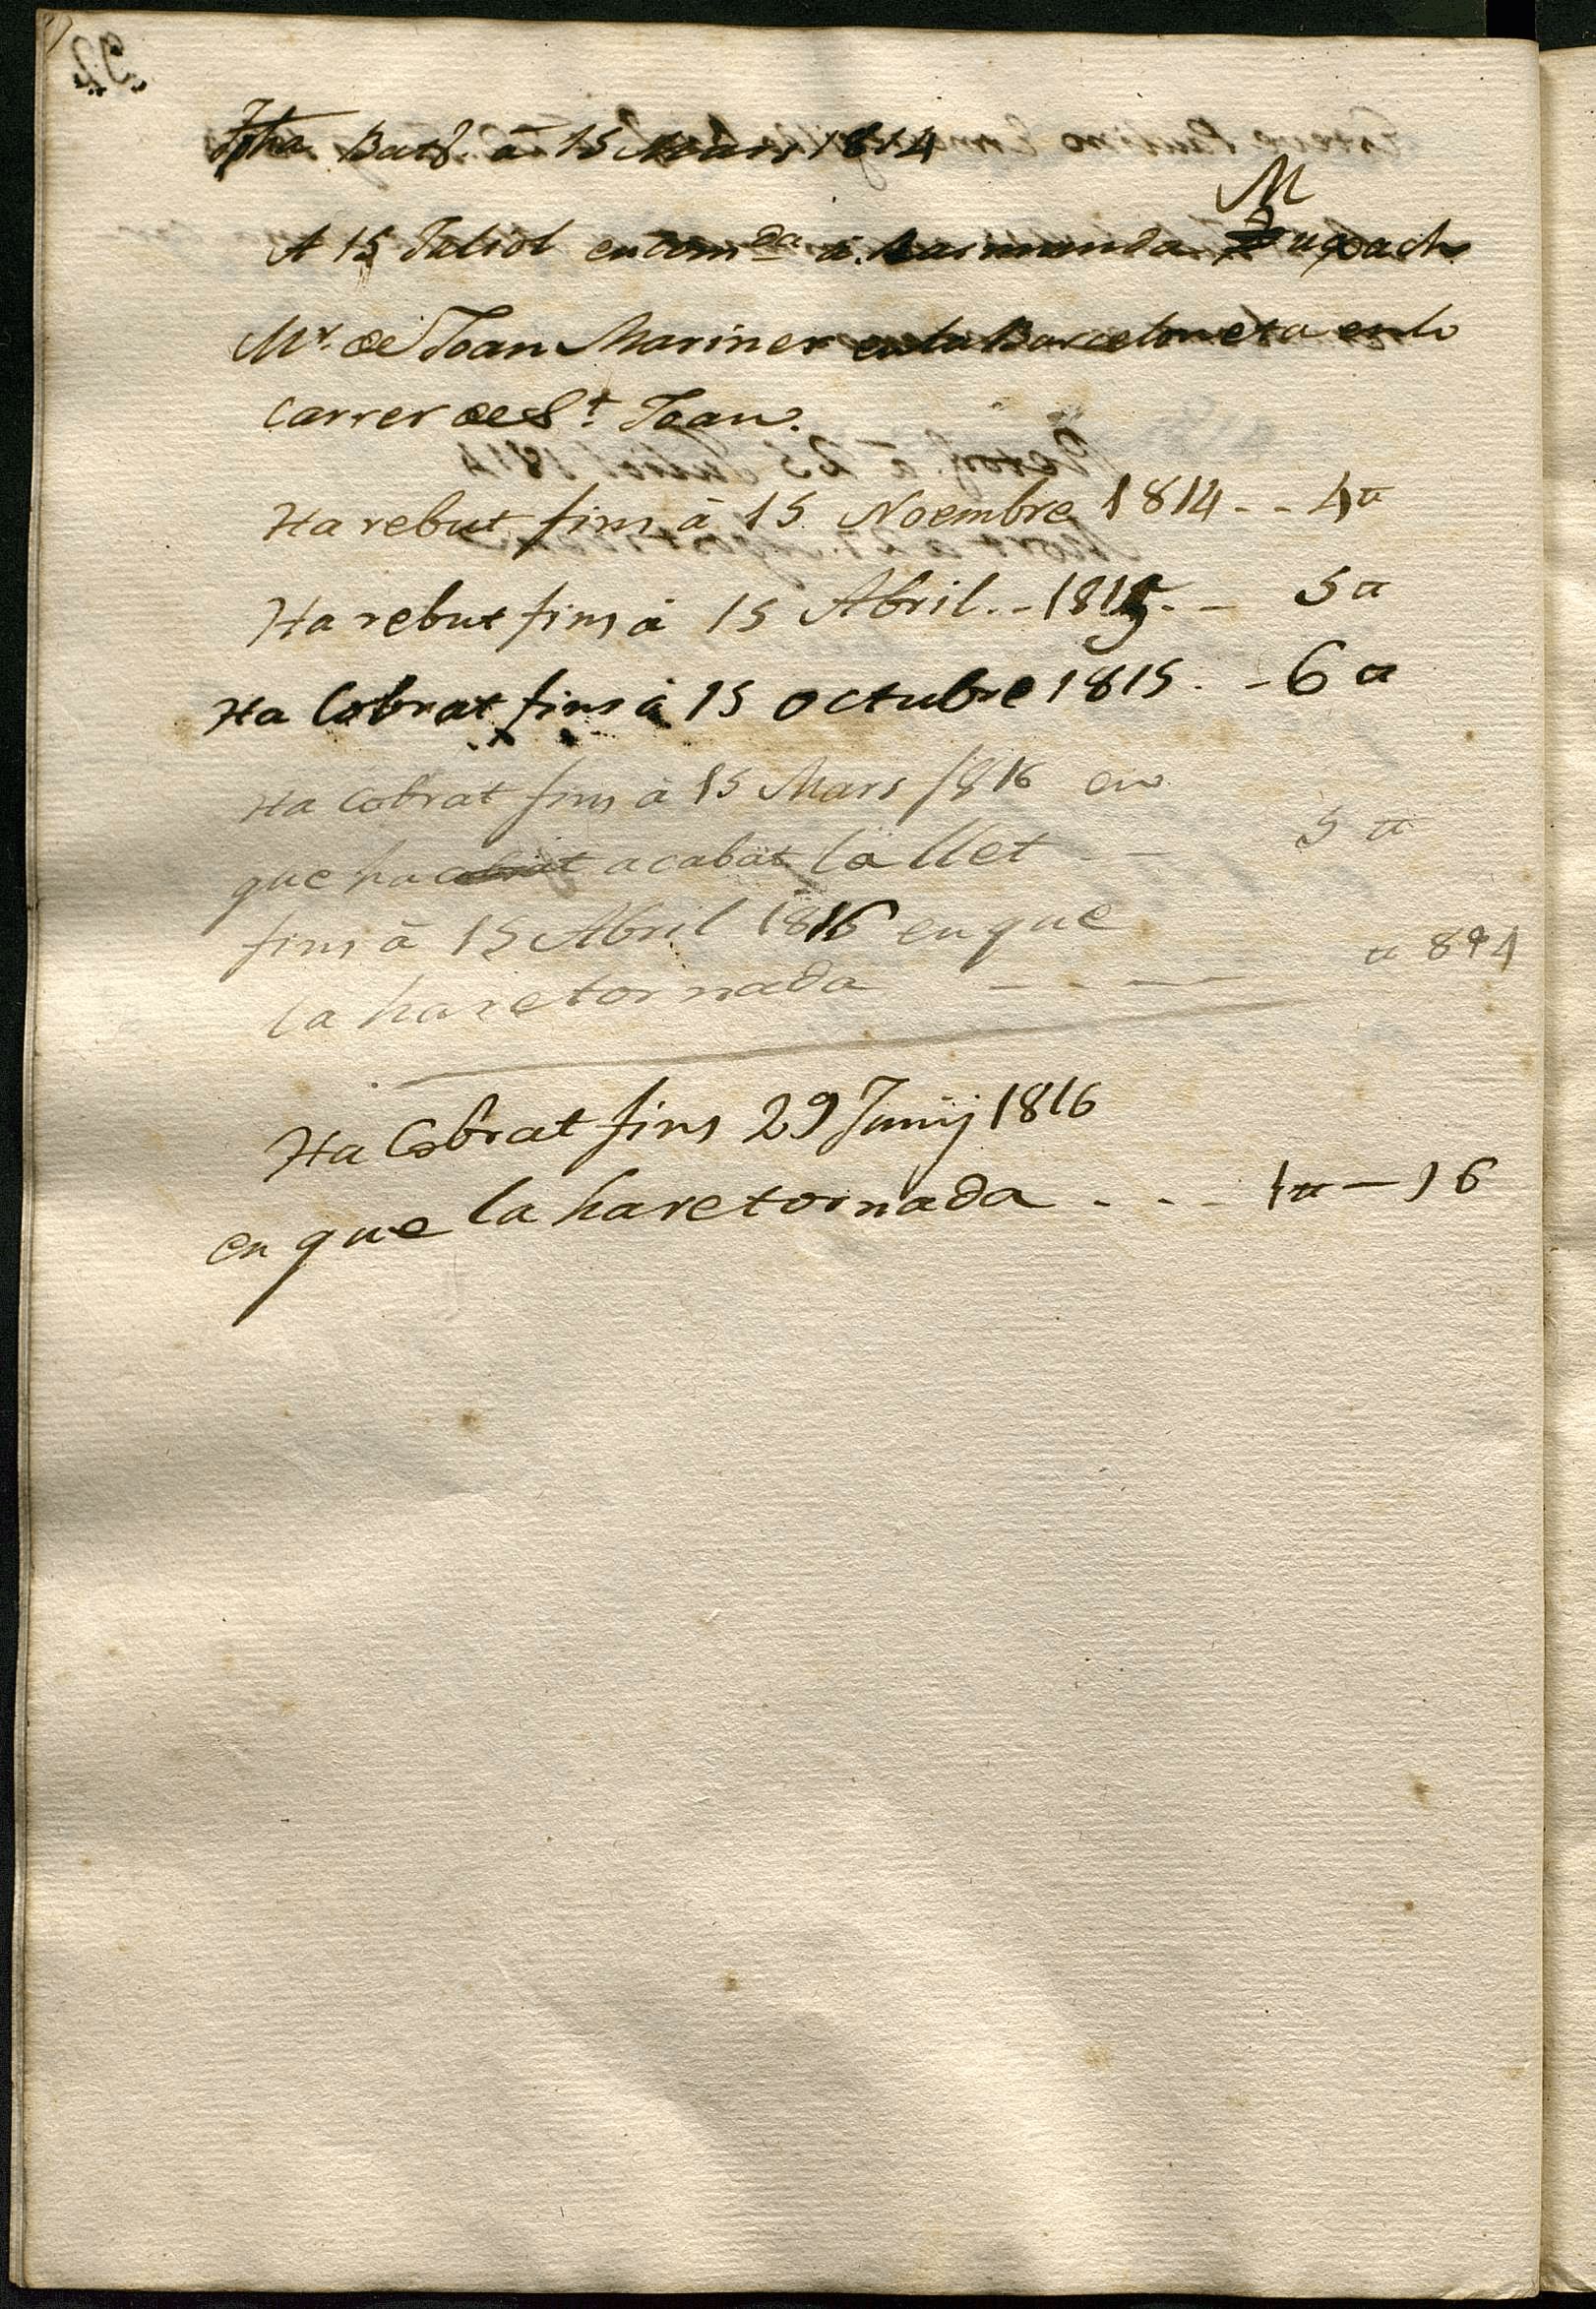 Jpha Batª. à 15 Mars 1814
M
A 15 Juliol encomda à Raimunda Pugach
Mr. de Joan Mariner en la Barceloneta en lo
carrer de St. Joan.
Ha rebut fins à 15 Noembre 1814 - - 4 ₶
Ha rebut fins à 15 Abril - - 1815 - - 5 ₶
Ha Cobrat fins à 15 Octubre 1815 - - 6 ₶
Ha Cobrat fins à 15 Mars 1816 en
que ha acabat la llet - - 5 ₶
fins à 15 Abril 1816 en que
la ha retornada - - - ₶ 8
Ha Cobrat fins 29 Juny 1816
en que la ha retornada - - - 1 ₶ - 16